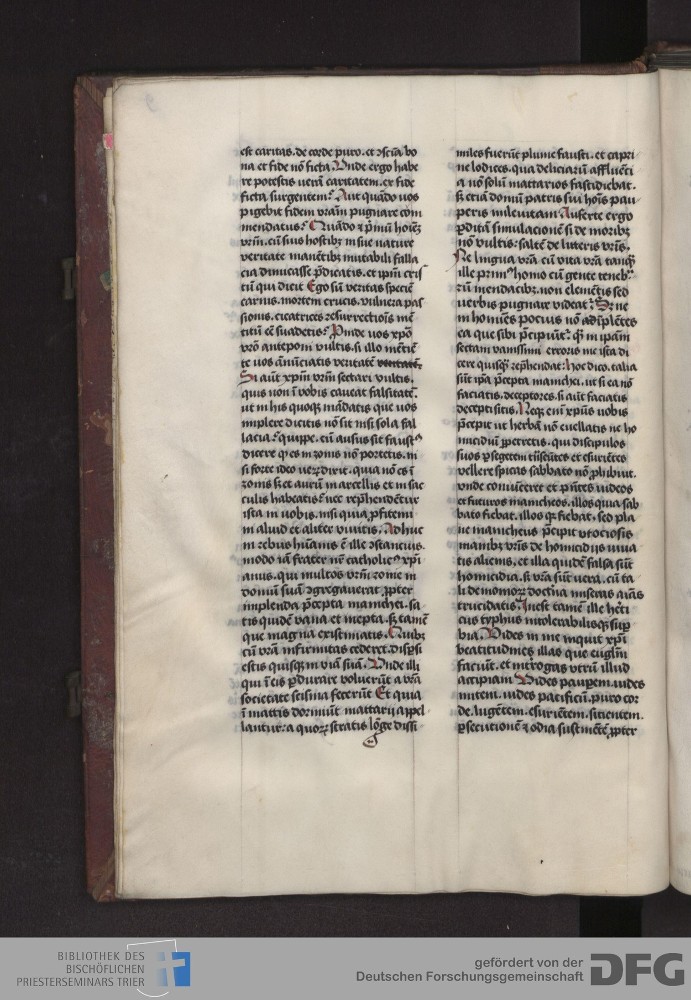 est caritas. de corde puro. et ↄscīa bo
na et fide nō ficta. Unde ergo habe
re potestis uerā caritatem. ex fide
ficta surgentem? Aut quādo uos
pigebit fidem vrām pugnare com
mendatus? Quādo ⁊ pͥmū hoīez
vrm̄. cū suis hostibꝫ in sue nature
veritate manētibꝫ mutabili falla
cia dimicasse p̄dicatis. et ip̄m cris
tū qui dicit Ego sū veritas speciē
carnis. mortem crucis. vulnera pas
sionis. cicatrices resurrectiois mē
titū eē suadetis? Proinde uos xpō
vrō anteponi vultis. si illo mētiē
te uos ānūciatis veritatē veritatē.
Si aūt xpm̄ vrm̄ sectari vultis.
quis non ī vobis caueat falsitatē.
ut in his quoqꝫ mādatis que uos
implere dicitis nō sit nisi sola fal
lacia? quippe. cū ausus sit faustꝰ
dicere qꝫ es in zonis nō portetis. ni
si forte ideo ueꝝ dixit. quia nō es ī
zonis sꝫ et aurū in arcellis et in sac
culis habeatis? nec rep̄hendētur
ista in uobis. nisi quia ꝓfitemi
ni aliud et aliter viuitis. Adhuc
in rebus hūanis ē ille ↄstancius.
modo iā frater nr̄ catholicꝰ xpi
anus. qui multos vrm̄ rome in
domū suā ↄgregauerat ꝓpter
implenda p̄cepta manichei. sa
tis quidē vana et inepta. sꝫ tamē
que magna existimatis. Quibꝫ
cū vrā infirmitas cederet. dispͥsi
estis quisqꝫ in viā suā. Unde illi
qui ī eis ꝑdurare voluerūt a vrā
societate scisma fecerūt Et quia
ī mattis dormiūt mattarij appel
lantur: a quoꝝ stratis lōge dissi
miles fuerūt plume fausti. et capri
ne lodices. qua deliciarū affluēti
a nō solū mattarios fastidiebat.
sꝫ etiā domū patris sui hoīs pau
peris mileuitani. Auferte ergo
ꝑditā simulacionē si de moribꝫ
nō vultis: saltē de litteris vrīs.
Ne lingua vrā cū vita vrā tanqꝫ
ille primꝰ homo cū gente teneb
rū mendacibꝫ. non elemētis sed
uerbis pugnare videat. Sꝫ ne
in homīes pocius nō adīplētes
ea que sibi p̄cipiūt. qꝫ in ipām
sectam vanissimi erroris me ista di
cere quisqꝫ rep̄hendat: hoc dico. talia
sūt ip̄a p̄cepta manichei. ut si ea nō
faciatis. deceptores. si aūt faciatis
decepti sitis. Neqꝫ enī xpūs uobis
p̄cepit ut herbā nō euellatis ne ho
micidiū ꝑpetretis. qui discipulos
suos ꝑ segetem trāseūtes et esuriētes
vellere spicas sabbato nō ꝓhibuit.
vnde conuīceret et p̄ntes iudeos
et futuros manicheos. illos quia sab
bato fiebat. illos qꝫ fiebat. sed pla
ne manicheus p̄cipit vt ociosis
manibꝫ vrīs de homicidijs viua
tis alienis. et illa quidē falsa sūt
homicidia. sꝫ vrā sūt vera. cū ta
li demonioꝝ doctīna miseras aīas
trucidatis. Inest tamē ille heti
cus typhus intolerabilisqꝫ suꝑ
bia. Vides in me inquit xpi
beatitudines illas que euglm̄
faciūt. et introgas vtrū illud
accipiam Vides paupem. uides
mitem. uides pacificū. puro cor
de. lugētem. esuriētem. sitientem.
ꝑsecutionē ⁊ odia sustinētē ꝓpter
BIBLIOTHEK DES
BISCHÖFLICHEN
PRIESTERSEMINARS TRIER
gefördert von der
Deutschen Forschungsgemeinschaft
DFG